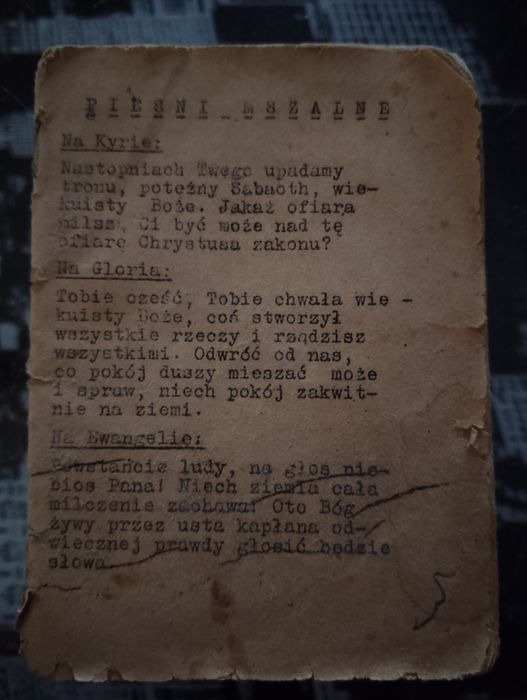 PIEŚNI MSZALNE
Na Kyrie:
Nastopniach Twego upadamy
tronu, potężny Sabaoth, wie-
kuisty Boże. Jakaż ofiara
milsz, Ci być może nad tę
ofiarę Chrystusa zakonu?
Na Gloria:
Tobie cześć, Tobie chwała wie -
kuisty Boże, coś stworzył
wszystkie rzeczy i rządzisz
wszystkimi. Odwróć od nas,
co pokój duszy mieszać może
i spraw, niech pokój zakwit-
nie na ziemi.
Na Ewangelię:
Powstańcie ludy, na głos nie-
bios Pana! Niech ziemia cała
milczenie zachowa! Oto Bóg
żywy przez usta kapłana od-
wiecznej prawdy głosić będzie
słowa